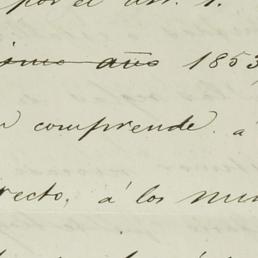 por el art. 1.
ismo año 1853
comprende á
recto, á los mu